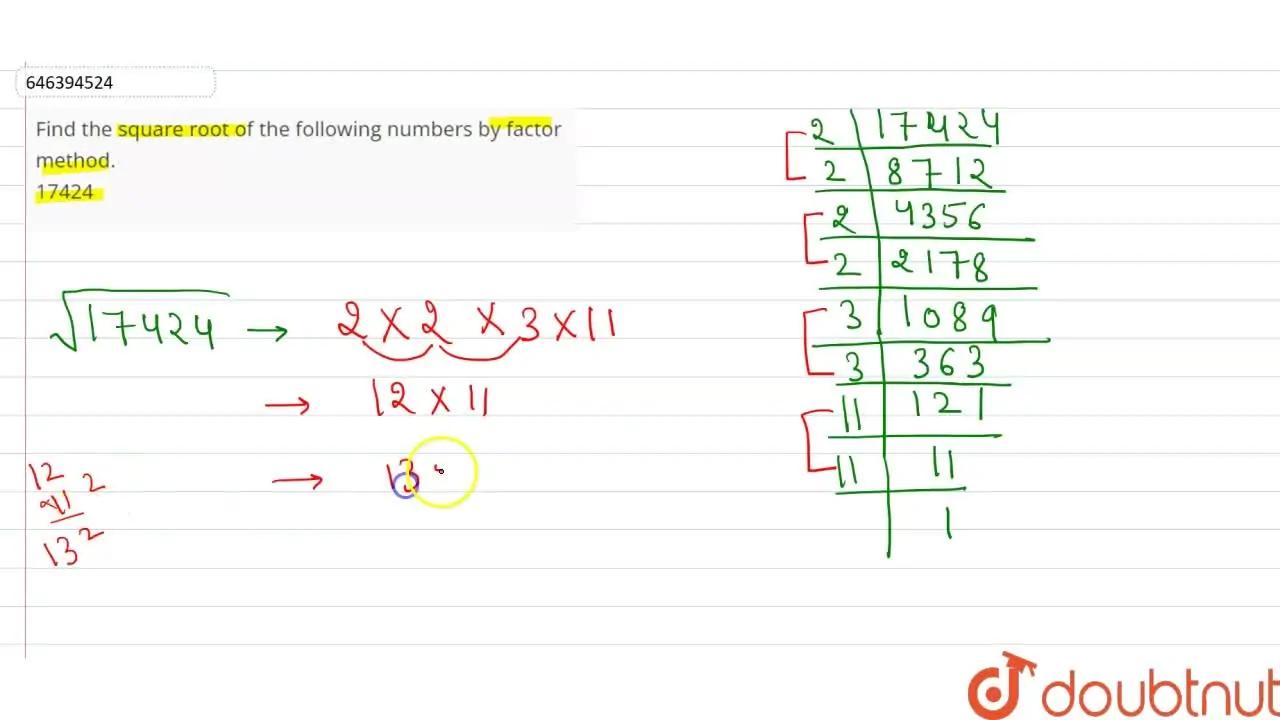 646394524
Find the square root of the following numbers by factor
method.
17424
√17424 → 2 × 2 × 3 × 11
→ 12 × 11
→ 13
12
×11 2
13 2
2 | 17424
2 | 8712
2 | 4356
2 | 2178
3 | 1089
3 | 363
11 | 121
11 | 11
1
doubtnut